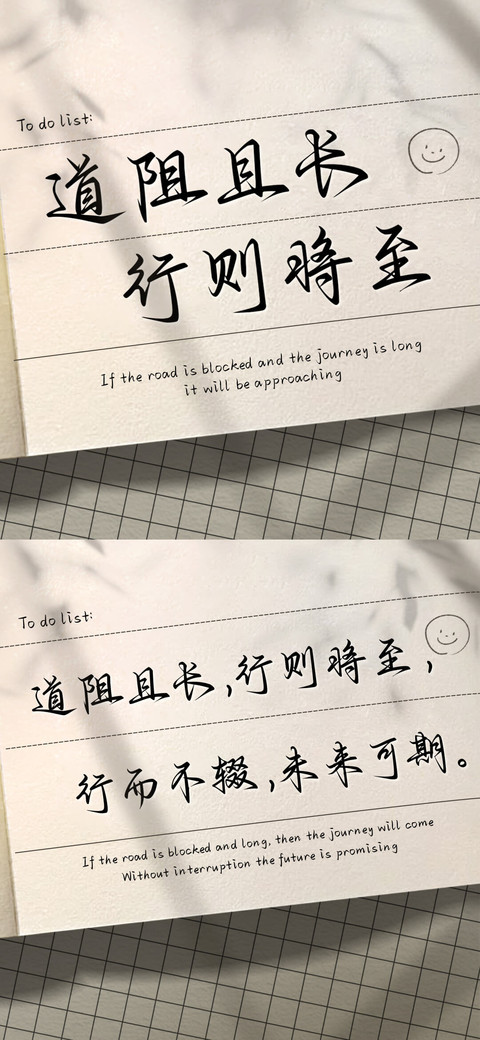 To do list:
道阻且长
行则将至
If the road is blocked and the journey is long
it will be approaching
To do list:
道阻且长,行则将至,
行而不辍,未来可期。
If the road is blocked and long, then the journey will come
Without interruption the future is promising